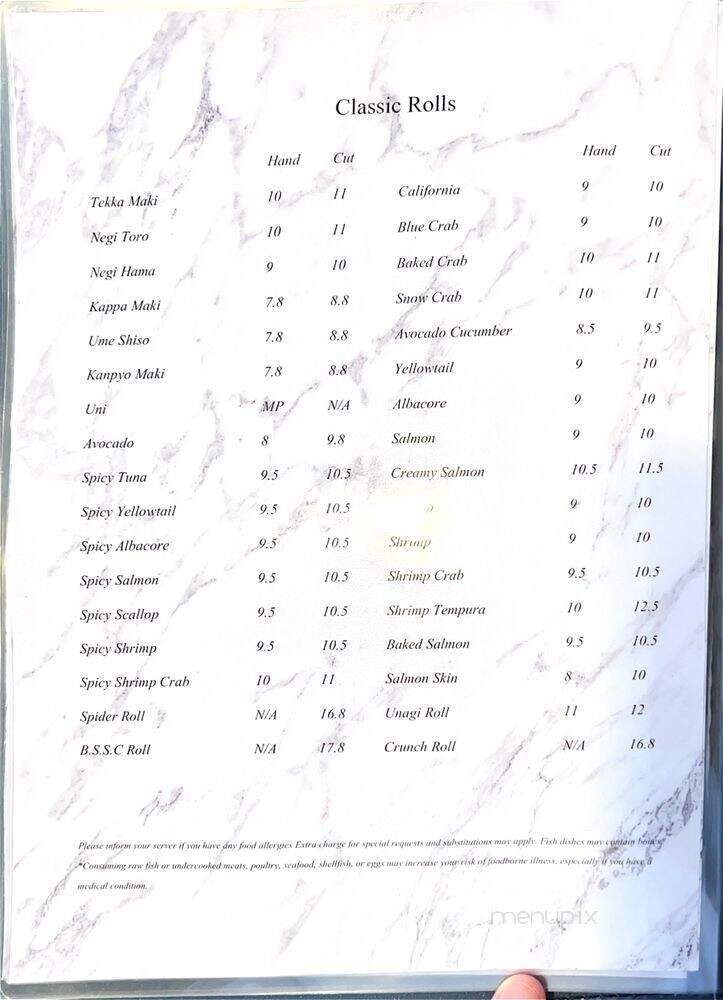 Classic Rolls
Hand Cut Hand Cut
Tekka Maki 10 11 California 9 10
Negi Toro 10 11 Blue Crab 9 10
Negi Hama 9 10 Baked Crab 10 11
Kappa Maki 7.8 8.8 Snow Crab 10 11
Ume Shiso 7.8 8.8 Avocado Cucumber 8.5 9.5
Kanpyo Maki 7.8 8.8 Yellowtail 9 10
Uni MP N/A Albacore 9 10
Avocado 8 9.8 Salmon 9 10
Spicy Tuna 9.5 10.5 Creamy Salmon 10.5 11.5
Spicy Yellowtail 9.5 10.5 9 10
Spicy Albacore 9.5 10.5 Shrimp 9 10
Spicy Salmon 9.5 10.5 Shrimp Crab 9.5 10.5
Spicy Scallop 9.5 10.5 Shrimp Tempura 10 12.5
Spicy Shrimp 9.5 10.5 Baked Salmon 9.5 10.5
Spicy Shrimp Crab 10 11 Salmon Skin 8 10
Spider Roll N/A 16.8 Unagi Roll 11 12
B.S.S.C Roll N/A 17.8 Crunch Roll N/A 16.8
Please inform your server if you have any food allergies Extra charge for special requests and substitutions may apply. Fish dishes may contain bones.
*Consuming raw fish or undercooked meats, poultry, seafood, shellfish, or eggs may increase your risk of foodborne illness, especially if you have a
medical condition.
menupix